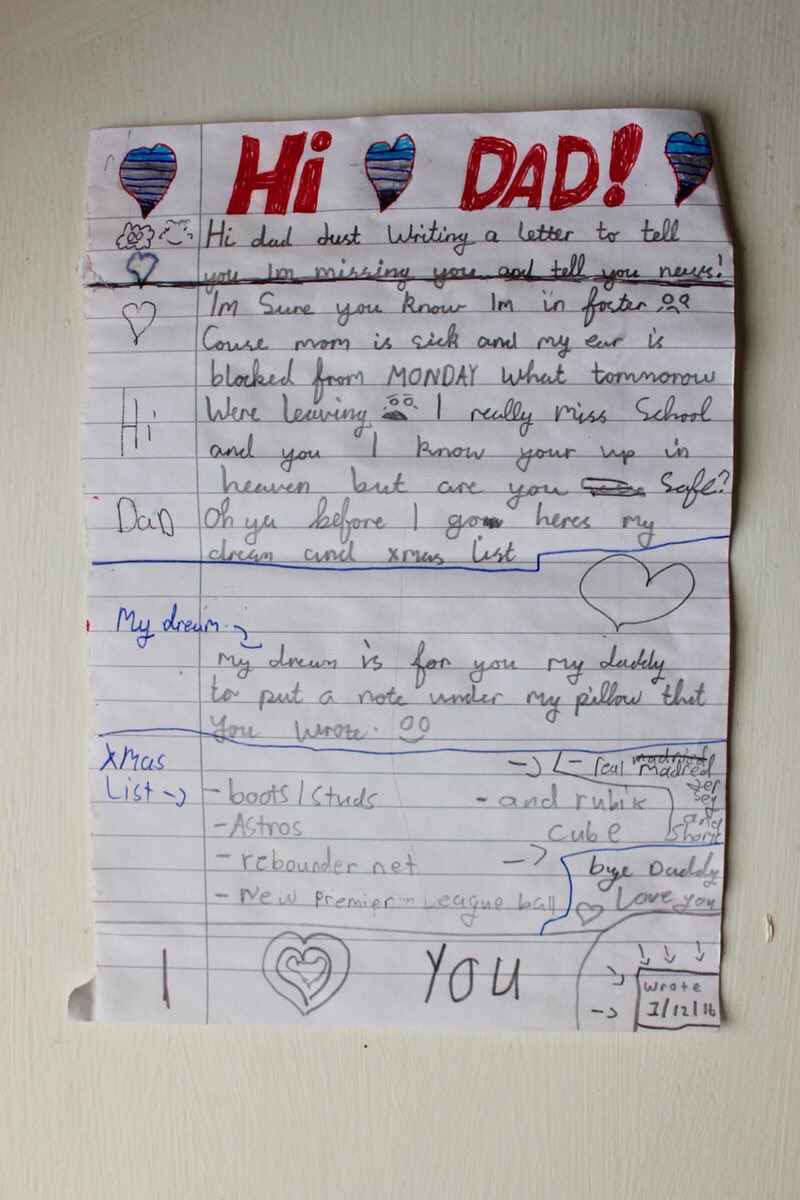 Hi DAD!
Hi dad Just Writing a letter to tell
you Im missing you and tell you news!
Im Sure you know Im in foster
Couse mom is sick and my ear is
blocked from MONDAY What tommorow
Were leaving I really miss School
Hi
and you I know your up in
heaven but are you Safe?
DaD
Oh ya before I go heres my
dream and xmas list
My dream
my dream is for you my daddy
to put a note under my pillow that
you wrote.
XMas
List
- real madred
jersey
and
Shorts
- boots/studs
- and rubik
- Astros
cube
- rebounder net
- New Premier League ball
bye Daddy
Love you
I YOU
wrote
1/12/16